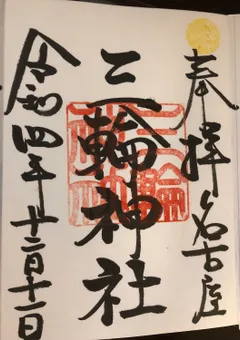 奉拝 名古屋
三輪神社
令和四年十二月十一日
三輪
神社